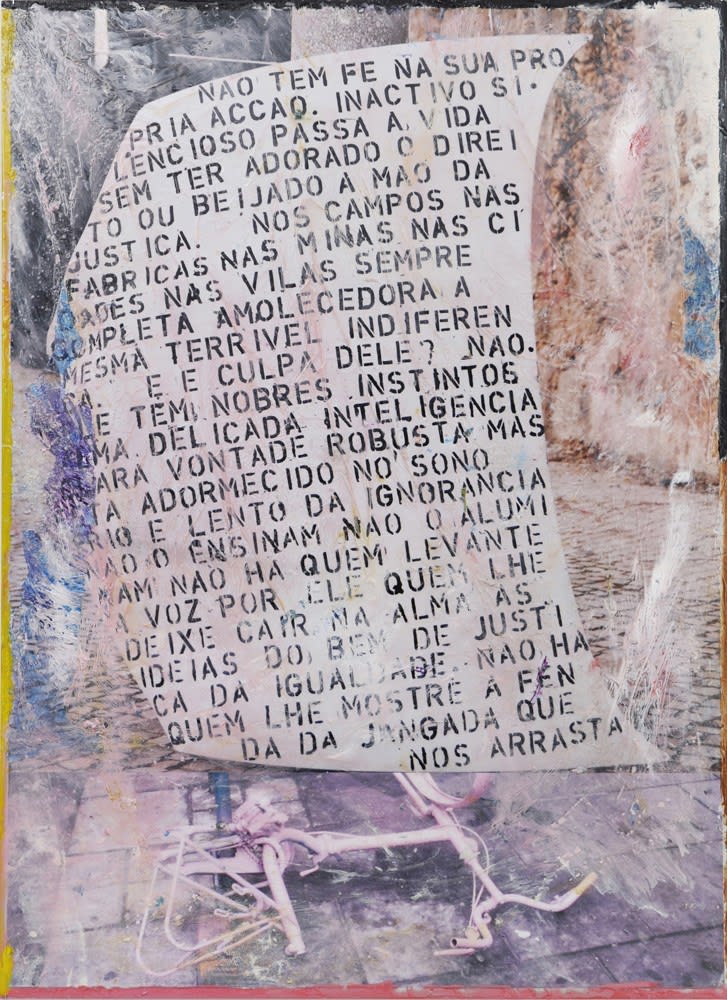 NAO TEM FE NA SUA PRO
PRIA ACCAO. INACTIVO SI.
LENCIOSO PASSA A VIDA
SEM TER ADORADO O DIREI
TO OU BEIJADO A MAO DA
JUSTICA. NOS CAMPOS NAS
FABRICAS NAS MINAS NAS CI
DADES NAS VILAS SEMPRE
COMPLETA AMOLECEDORA A
MESMA TERRIVEL INDIFEREN
CA. E E CULPA DELE? NAO.
E TEM NOBRES INSTINTOS
MA DELICADA INTELIGENCIA
ARA VONTADE ROBUSTA MAS
TA ADORMECIDO NO SONO
RIO E LENTO DA IGNORANCIA
NAO O ENSINAM NAO O ALUMI
NAM NAO HA QUEM LEVANTE
A VOZ POR ELE QUEM LHE
DEIXE CAIR NA ALMA AS
IDEIAS DO BEM DE JUSTI
CA DA IGUALDADE. NAO HA
QUEM LHE MOSTRE A FEN
DA DA JANGADA QUE
NOS ARRASTA